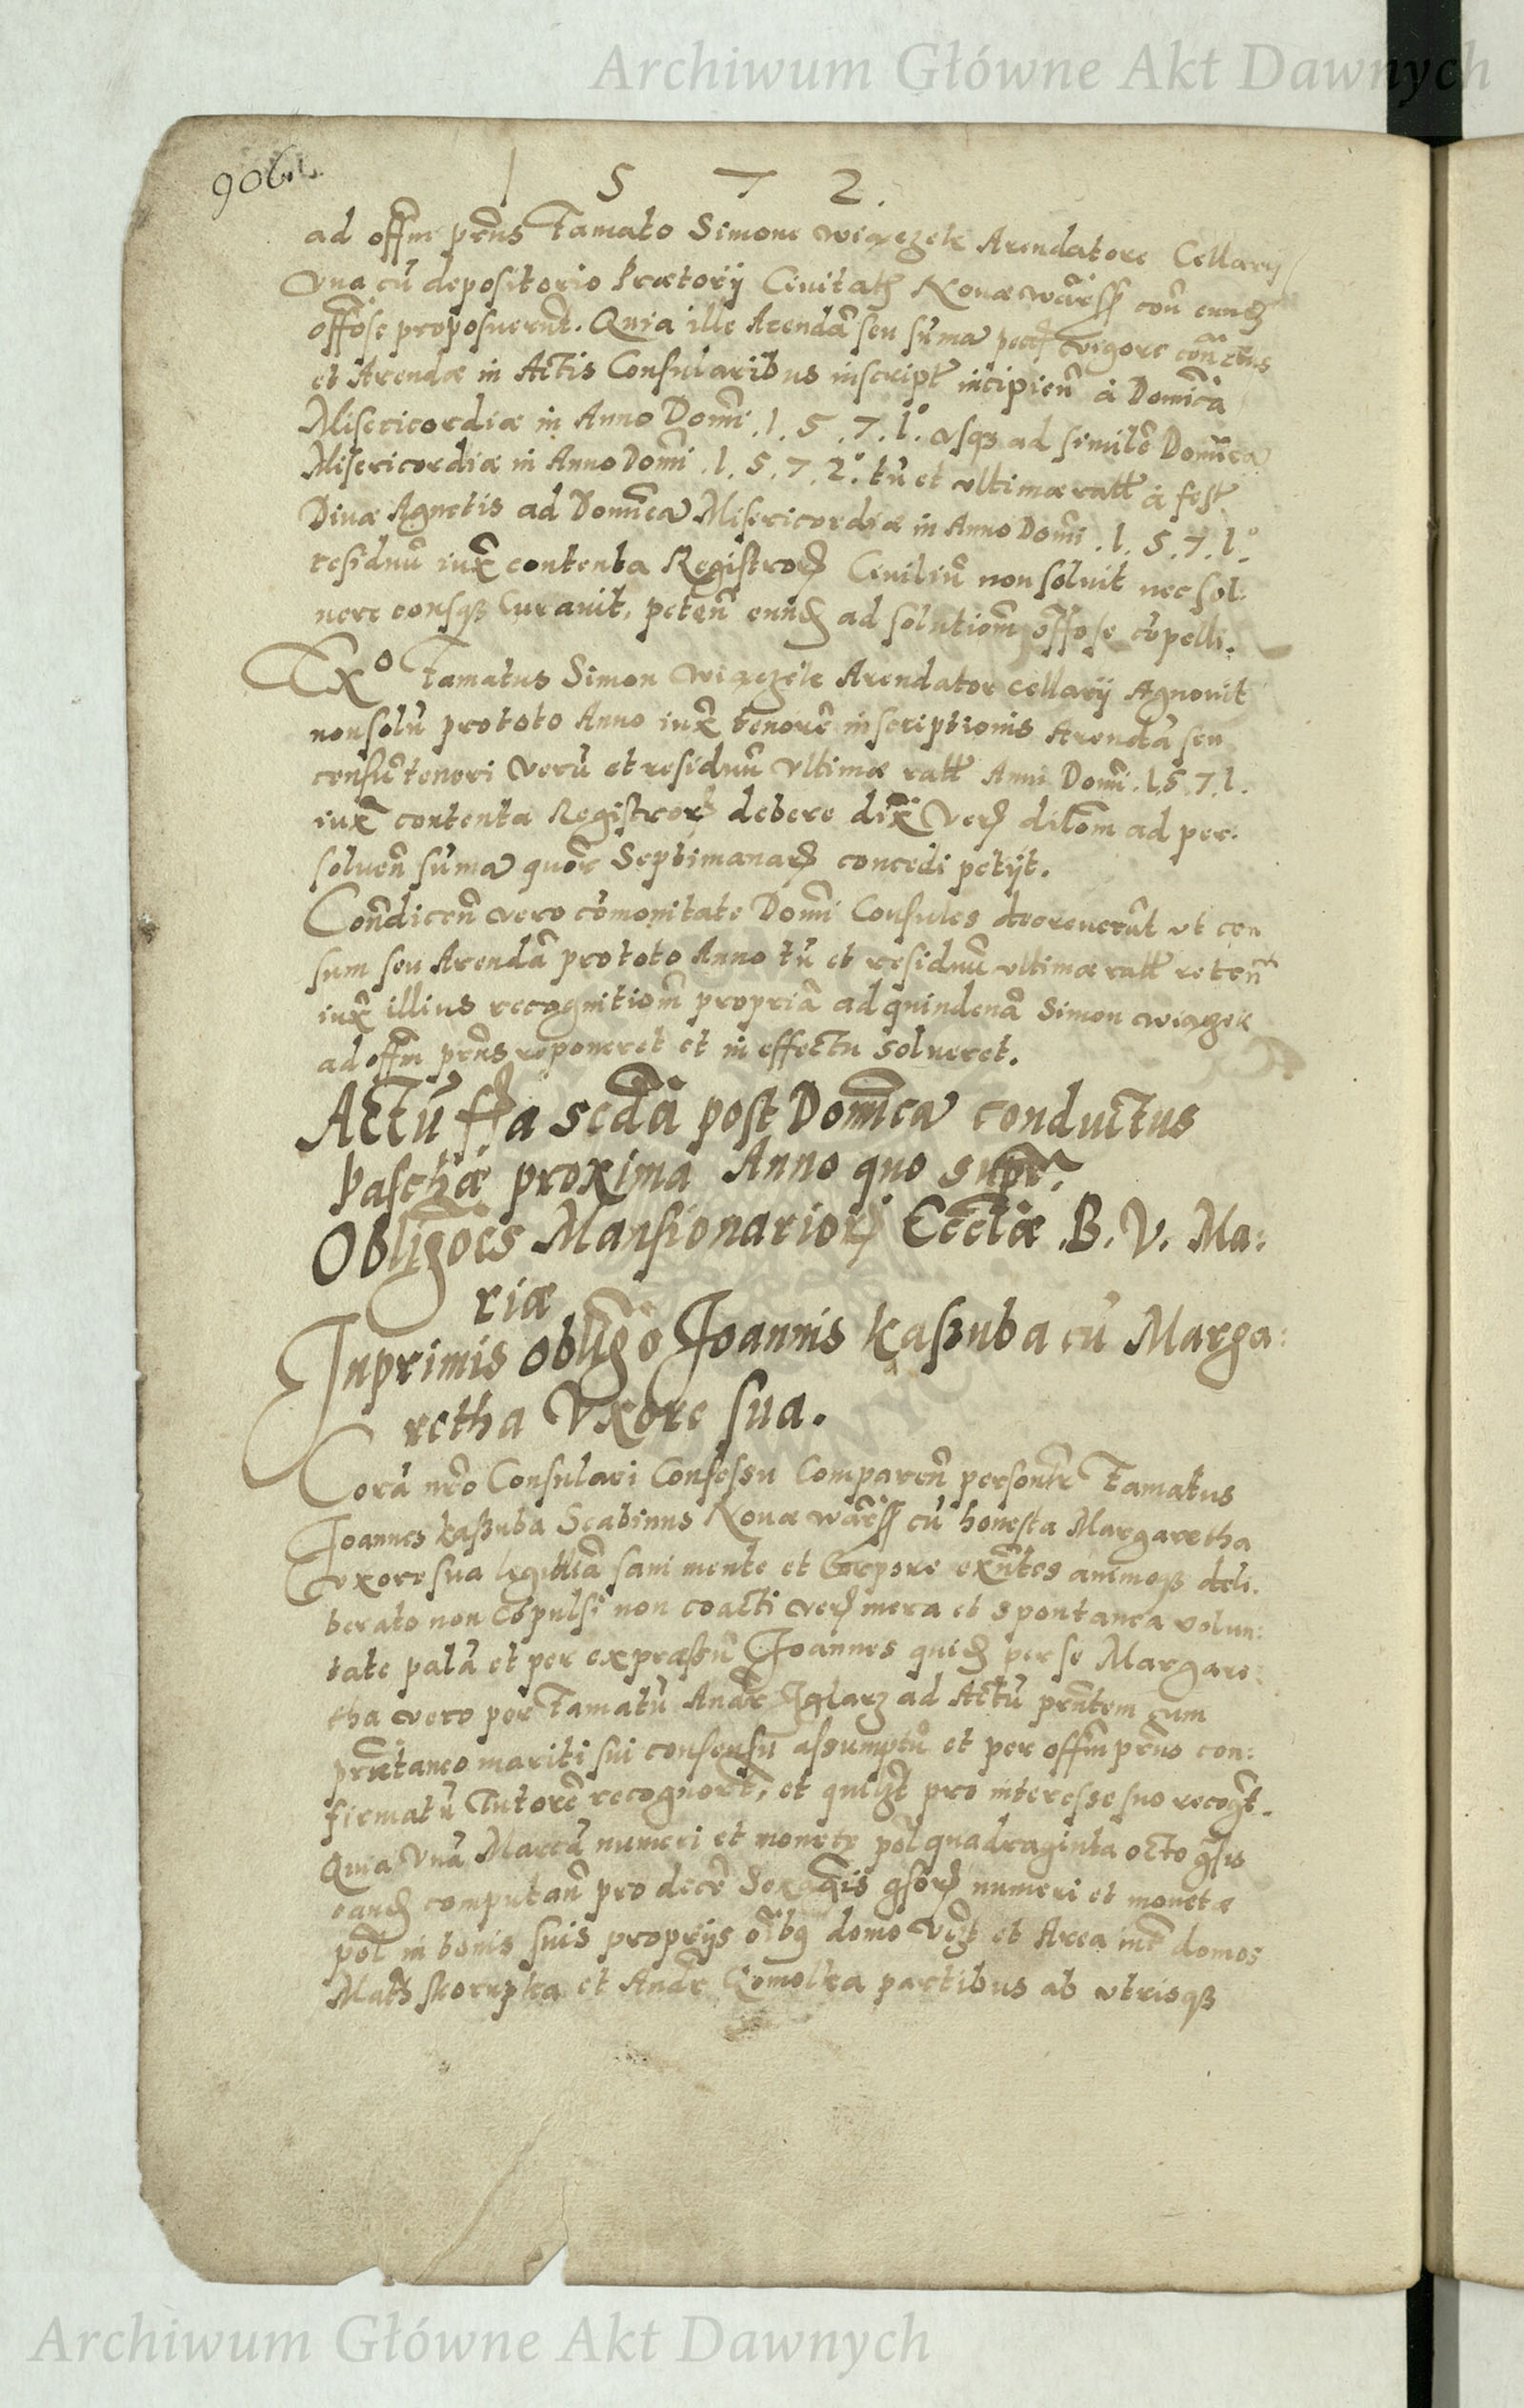 Archiwum Główne Akt Dawnych
906.
1 5 7 2.
ad offm prns Famato Simone wiązek Arendatore Cellarij
Vna cũ depositorio Prætorij Ciuitatz Nouæ warss con eund
offose proposuernt. Quia ille Arendã seu suma vigore
et Arendæ in Actis Consularibus inscript incipien à Domica
Misericordiæ in Anno Domi .1.5.7.1° vsqz ad simile Domica
Misericordiæ in Anno Domi .1.5.7.2° tũ et vltimæ ratt à fest
Diuæ Agnetis ad Domica Misericordiæ in Anno Domi .1.5.7.1°
residuũ iux contenta Registror Ciuiliũ non soluit nec sol:
uere consqz curauit, peten eund ad solutiom offose cõpelli.
Exº Famatus Simon wiązek Arendator cellarij Agnouit
non solũ pro toto Anno iux tenorẽ inscriptionis Arendã seu
censũ teneri Verũ et residuũ vltimæ ratt Anni Domi .1.5.7.1.
iux contenta Registror debere dix Ver dilom ad per:
soluen suma quor Septimanar concedi petijt.
Condicen vero cõmonitate Domi Consules decreuerũt vt cen
sum seu Arendã pro toto Anno tũ et residuũ vltimæ ratt reten
iux illius recognitiom propriã ad quindenã Simon wiązek
ad offm prns reponeret et in effectu solueret.
Actũ ffa scda post Domica conductus
Paschæ proxima Anno quo supr.
Obligoes Mansionarior Eccliæ .B. V. Ma:
riæ
Inprimis obligo Joannis kaßuba cũ Marga:
retha Vxore sua.
Corã nro Consulari Consessu Comparen personlr Famatus
Joannes kaßuba Scabinus Nouæ warss cũ honesta Margaretha
vxore sua legittiã sani mente et Corpore exntes animoqz deli:
berato non Cõpulsi non coacti ver mera et spontanea volun:
tate palã et per expraßũ Joannes quid per se Margare:
tha vero per Famatũ Andr Jglarz ad Actũ prntem cum
prætaneo mariti sui consensu assumptũ et per offm prns con:
firmatũ Tutorẽ recognort, et quilzt pro interesse suo recogt.
Quia Vnã Marcã numeri et monetæ pol quadraginta octo gsis
eand computan pro decẽ Sexagis gsor numeri et monetæ
pol in bonis suis proprijs oibq domo vizt et Area int domos
Math skorupka et Andr Gomolka partibus ab vtrisqz
Archiwum Główne Akt Dawnych